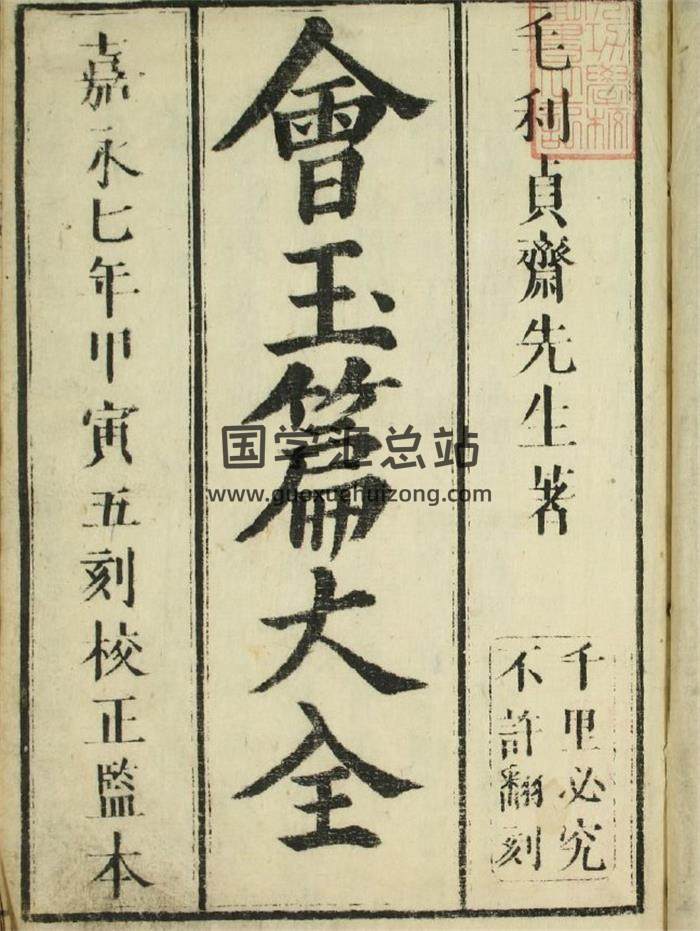 毛利貞齋先生著
千里必究
不許翻刻
會玉篇大全
嘉永七年甲寅五刻校正監本
国学汇总站
www.guoxuehuizong.com